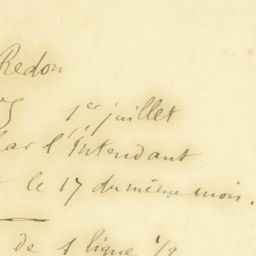 Redon
1er juillet
par l'Intendant
le 17 du même mois.
de 1 ligne 1/2